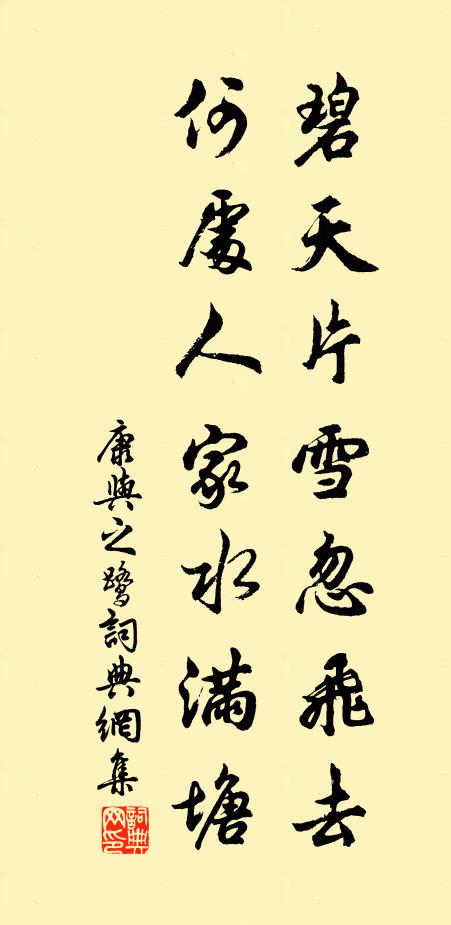 碧天片雪忽飛去
何處人家水滿塘
康與之鷺詞典網集
詞典網印